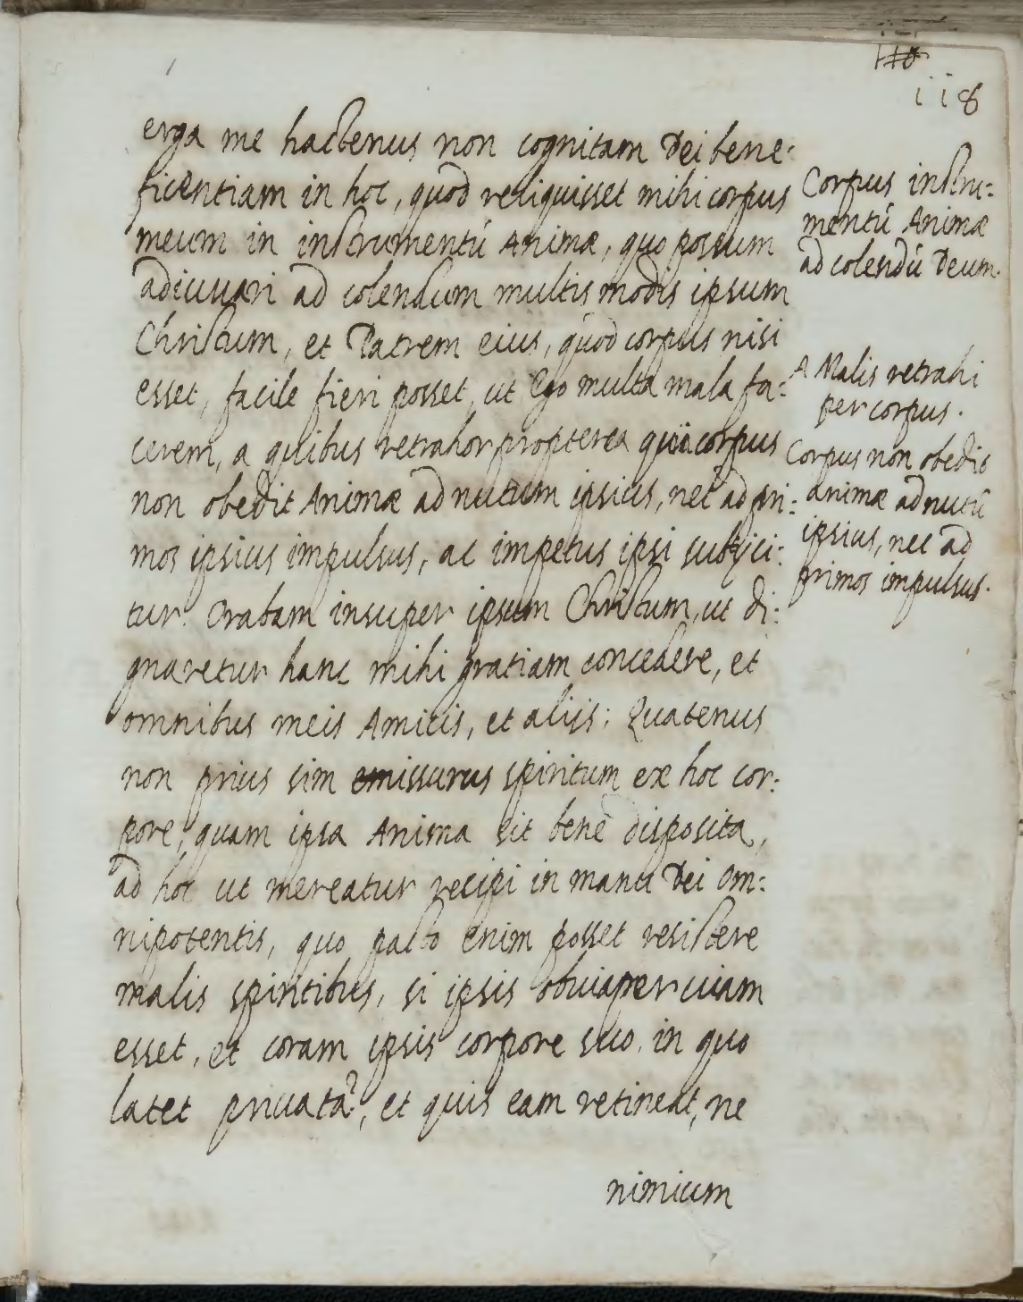 118
erga me hactenus non cognitam Dei bene:
ficentiam in hoc, quod reliquisset mihi corpus
meum in instrumentú Animæ, quo possum
adiuuari ad colendum multis modis ipsum
Christum, et Patrem eius, quod corpus nisi
esset, facile fieri posset, ut Ego multa mala fa:
cerem, a quibus retrahor propterea quia corpus
non obedit Animæ ad nutum ipsius, nec ad pri:
mos ipsius impulsus, ac impetus ipsi subijci:
tur. Orabam insuper ipsum Christum, ut di:
gnaretur hanc mihi gratiam concedere, et
omnibus meis Amicis, et alijs; Quatenus
non prius sim emissurus spiritum ex hoc cor:
pore, quam ipsa Anima sit benè disposita,
ad hoc ut mereatur recipi in manu Dei Om:
nipotentis, quo pacto enim posset resistere
malis spiritibus, si ipsis obuia per uiam
esset, et coram ipsis corpore suo, in quo
latet priuata?, et quis eam retineat, ne
nimium
Corpus instru:
mentú Animæ
ad colendú Deum.
A Malis retrahi
per corpus.
Corpus non obedit
animæ ad nutú
ipsius, nec ad
primos impulsus.